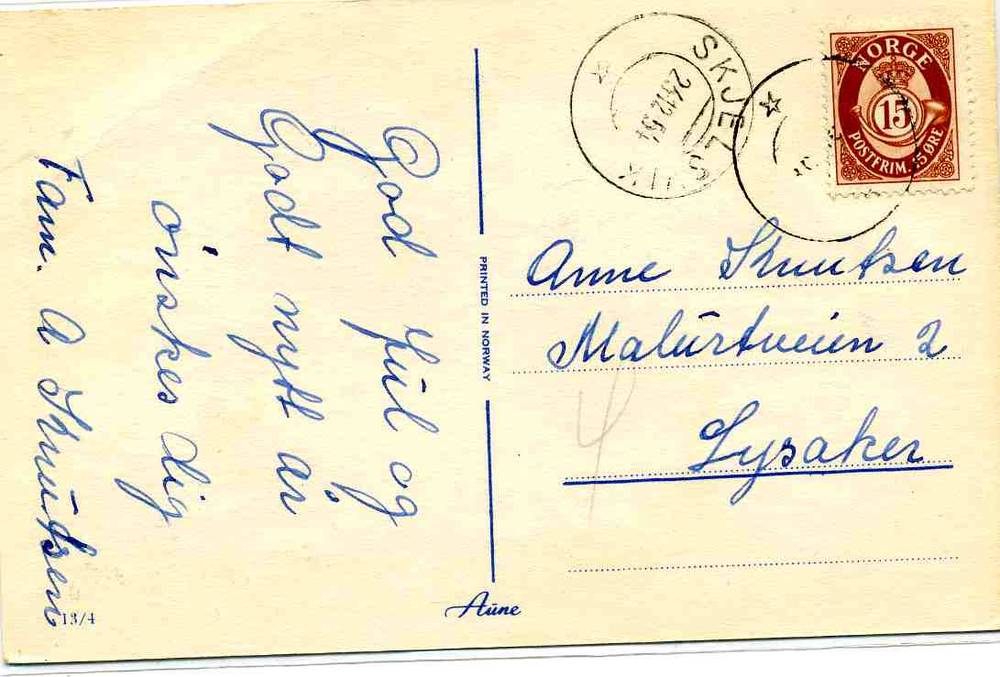 God Jul og
Godt nytt år
ønskes dig
Fam. A Knutsen
13/4
PRINTED IN NORWAY
Aune
SKJELSVIK
23.12.54
NORGE
15
POSTFRIM. 15 ØRE
Anne Knutsen
Malurtveien 2
Lysaker
4